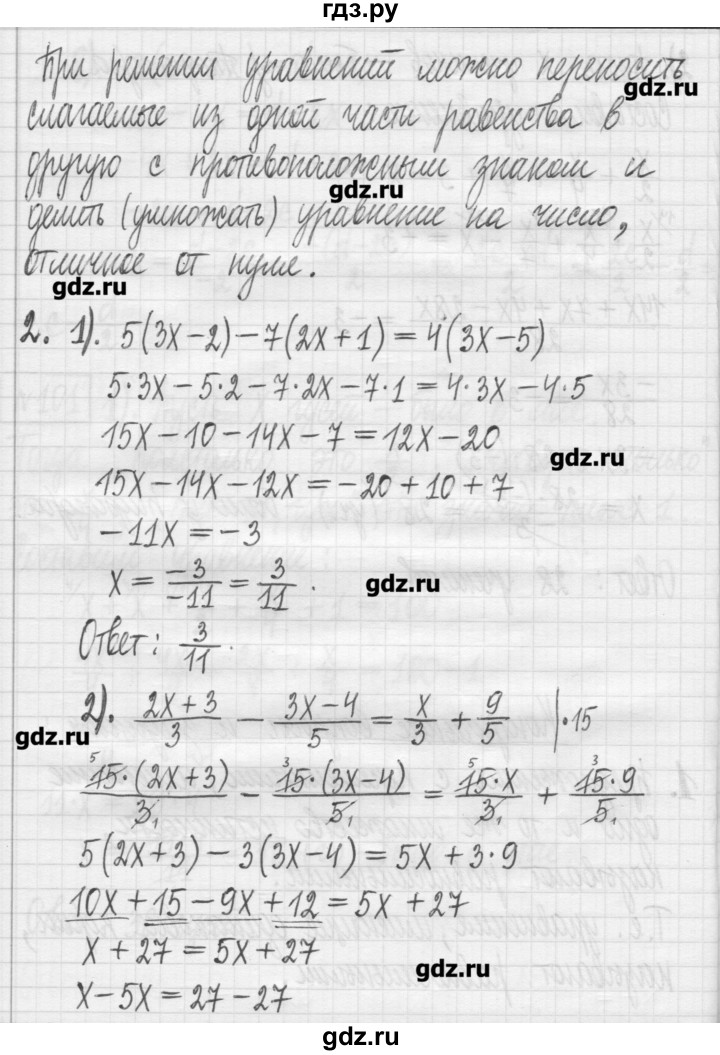 гдз.ру
При решении уравнений можно переносить
gdz.ru
слагаемые из одной части равенства в
другую с противоположным знаком и
gdz.ru
делить (умножать) уравнение на число,
отличное от нуля.
gdz.ru
2. 1). 5(3x-2)-7(2x+1)=4(3x-5)
5·3x-5·2-7·2x-7·1=4·3x-4·5
15x-10-14x-7=12x-20
gdz.ru
15x-14x-12x=-20+10+7
-11x=-3
x=-3/-11=3/11.
gdz.ru
Ответ: 3/11.
2). (2x+3)/3 - (3x-4)/5 = x/3 + 9/5 |·15
gdz.ru
5 15·(2x+3)/3 1 - 3 15·(3x-4)/5 1 = 5 15·x/3 1 + 3 15·9/5 1
5(2x+3)-3(3x-4)=5x+3·9
10x+15-9x+12=5x+27
x+27=5x+27
gdz.ru
x-5x=27-27
gdz.ru